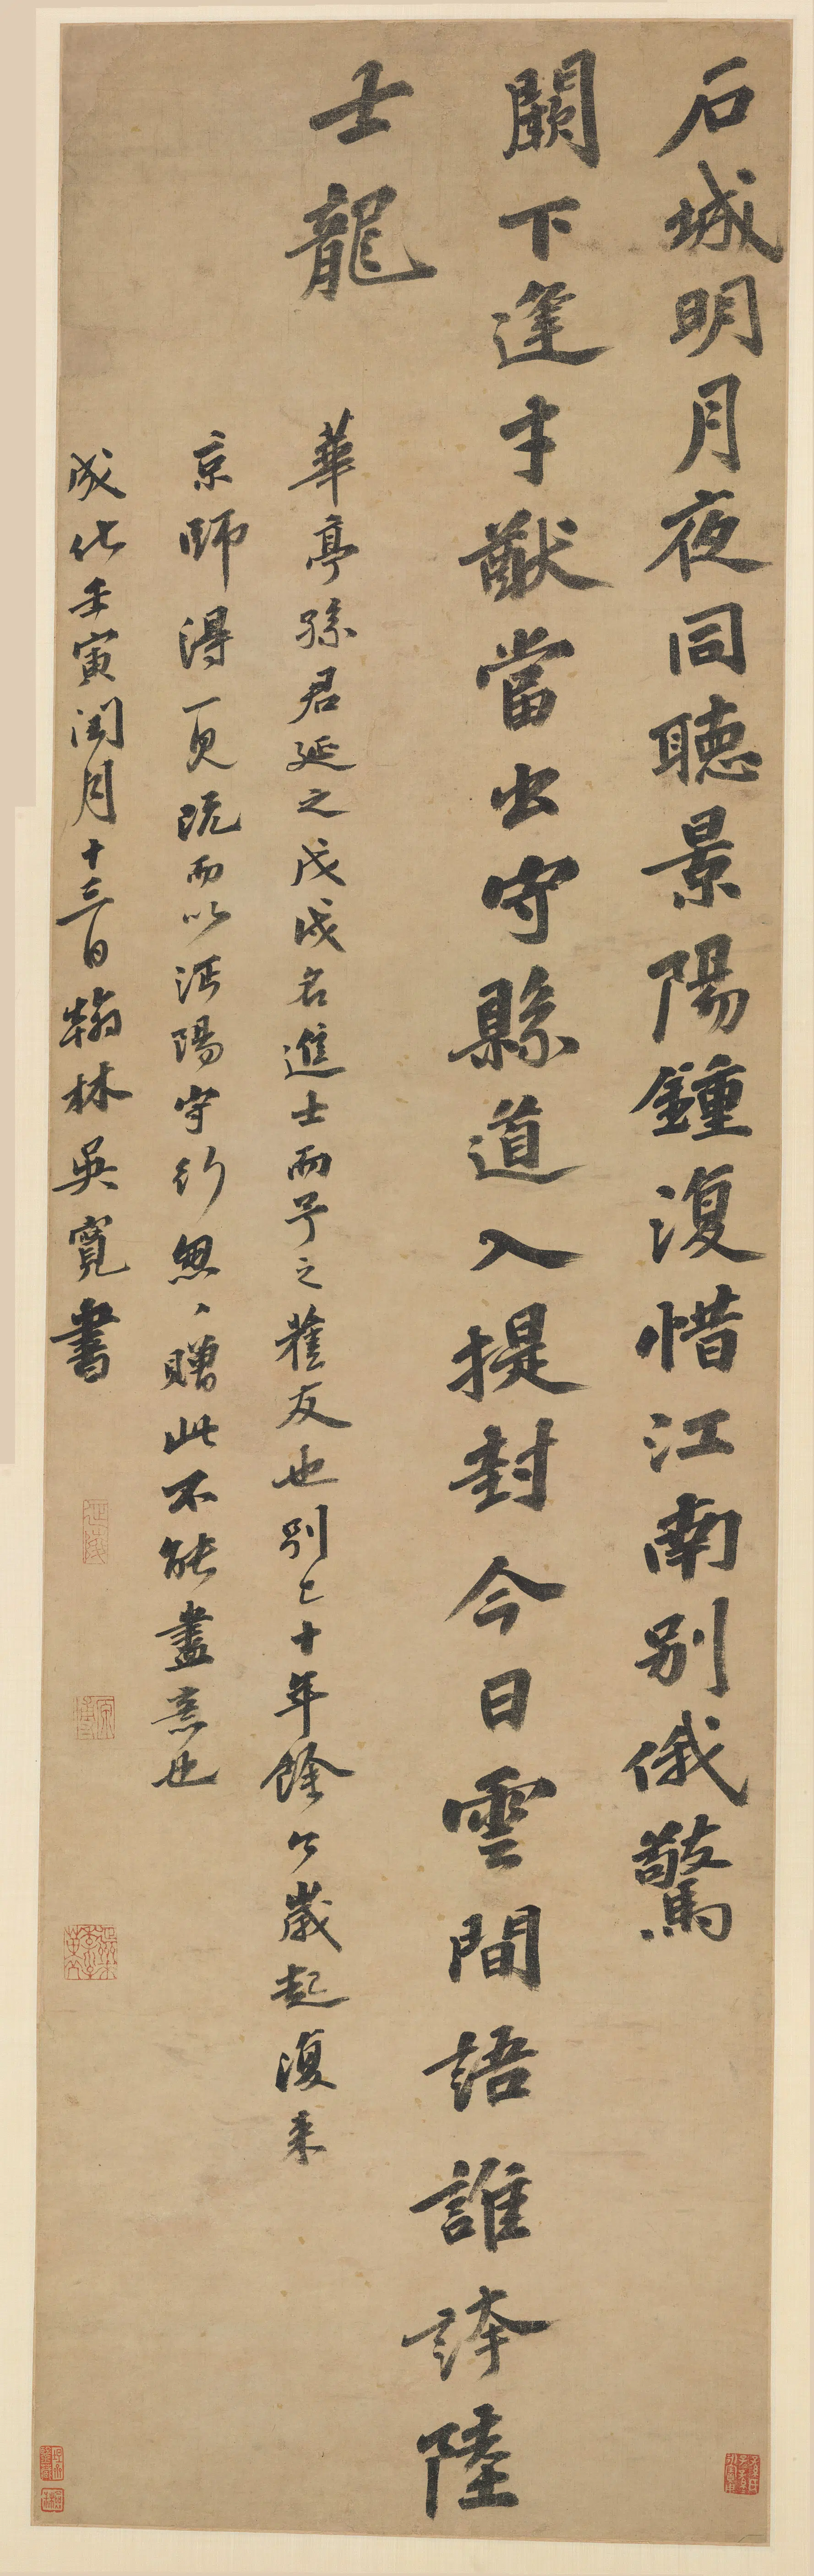 石城明月夜同聽景陽鍾復惜江南別俄驚
闕下逢才猷當出守縣道入提封今日雲間語誰誇陸
士龍
華亭孫君延之戊戌名進士而予之舊友也別已十年餘今歲起復来
京師得一見既而以沔陽守行怱、贈此不能盡意也
成化壬寅閏月十三日翰林吳寬書